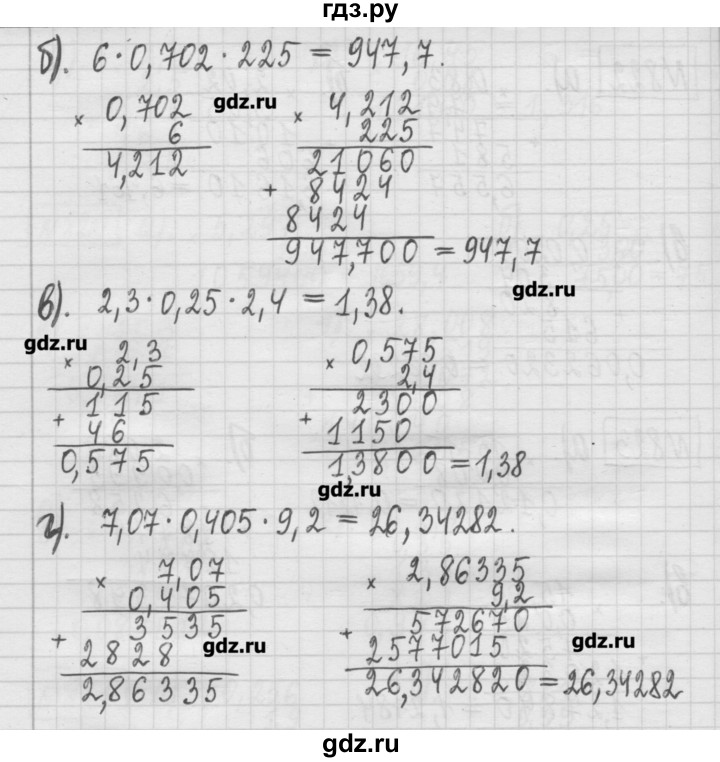 гдз.ру
б). 6 · 0,702 · 225 = 947,7.
× 0,702
6
4,212
gdz.ru
× 4,212
225
21060
+ 8424
8424
947,700 = 947,7
gdz.ru
в). 2,3 · 0,25 · 2,4 = 1,38.
gdz.ru
× 2,3
0,25
115
+ 46
0,575
× 0,575
2,4
2300
+ 1150
1,3800 = 1,38
gdz.ru
г). 7,07 · 0,405 · 9,2 = 26,34282.
× 7,07
0,405
3535
+ 2828
2,86335
gdz.ru
× 2,86335
9,2
572670
+ 2577015
26,342820 = 26,34282
gdz.ru
gdz.ru